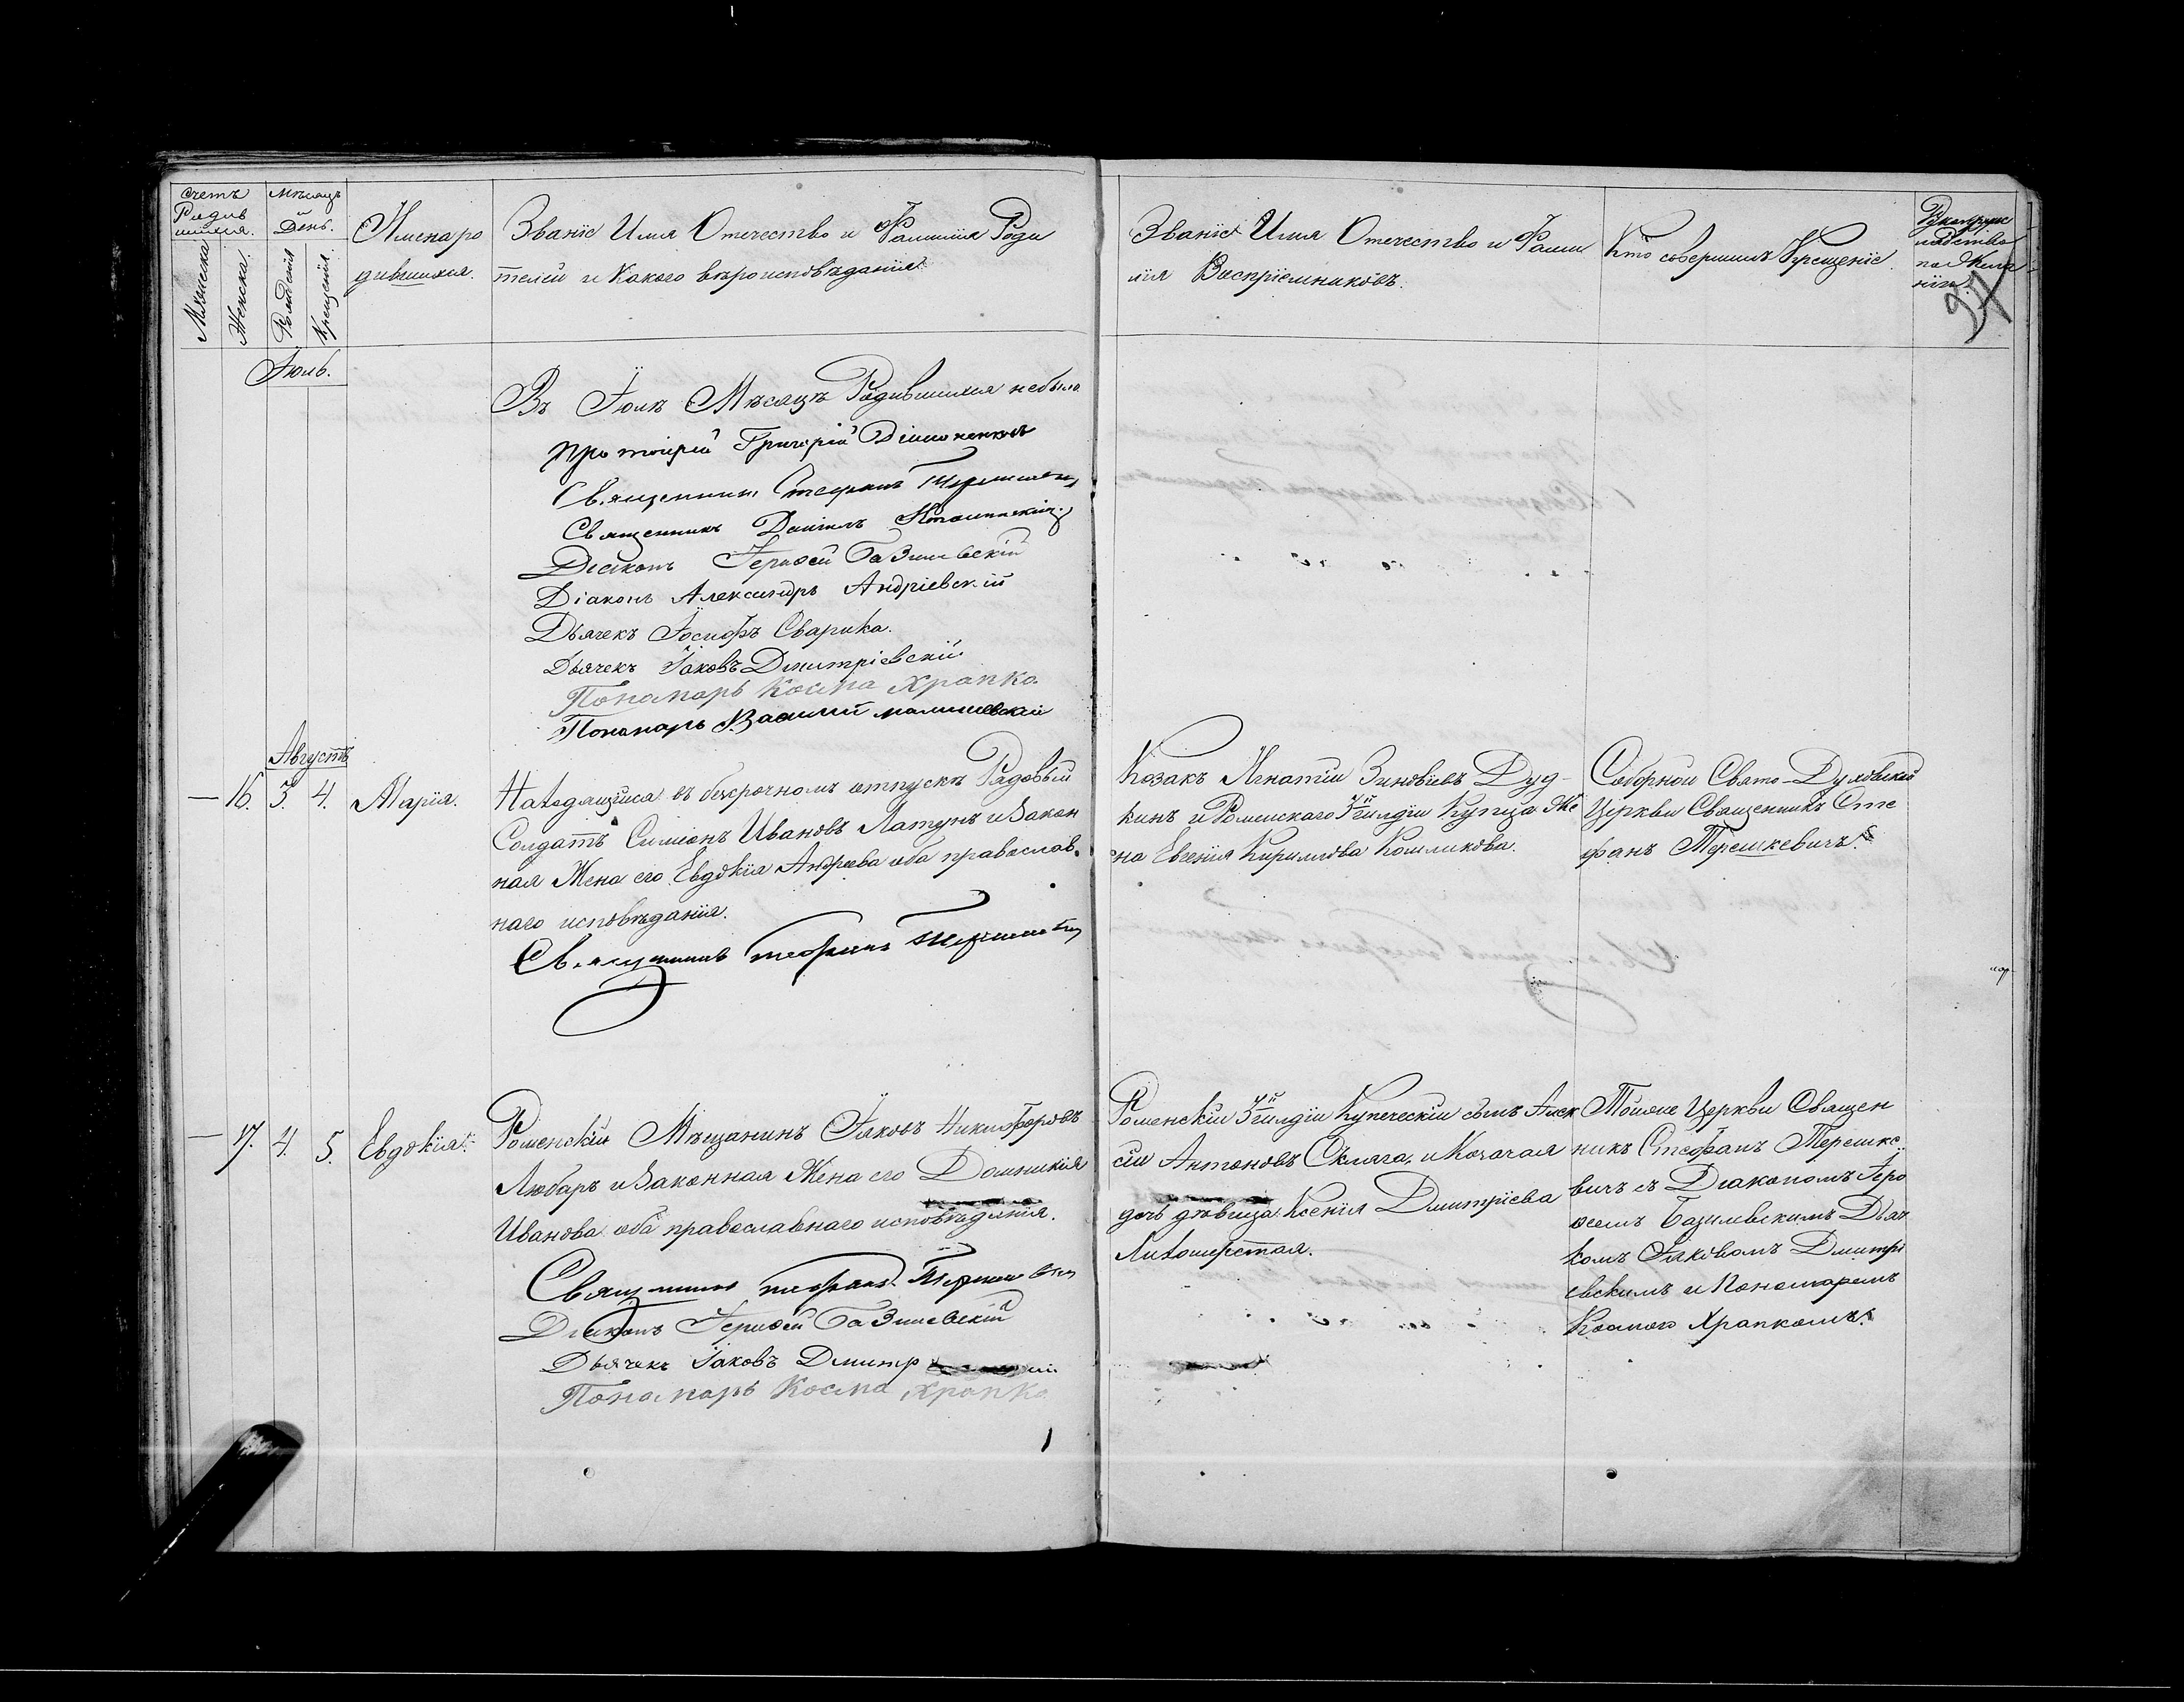 Счетъ
Родив
шихся.
Мѣсяцъ
и
День.
Мужеска
Женска.
Рожденія
Крещенія
Имена ро
дившихся.
Званіе Имя Отечество и Фамилія Роди
телей и Какого вѣроисповѣданія
Званіе Имя Отечество и Фами
лія Воспріемниковъ.
Кто совершилъ Крещеніе.
Рукопри
кладство
по Жела
нію.
37
Іюль.
Въ Іюлѣ Мѣсяцѣ Родившихся небыло
Протоіерей Григорій
Священникъ Стефанъ Терешкевичъ
Священникъ Даніилъ
Діаконъ Іерофей Базилевскій
Діаконъ Александръ Андріевскій
Дьячекъ Іосифъ Сварика.
Дьячекъ Іаковъ Дмитріевскій
Пономарь Косма Храпко
Пономарь Василій Малишевскій
Августъ
— 16. 3. 4. Марія.
Находящійся въ безсрочномъ отпускѣ Рядовый
Солдатъ Симіонъ Ивановъ Латунъ и Закон
ная Жена его Евдокія Андреева оба православ
наго исповѣданія.
Священникъ Стефанъ Терешкевичъ
Козакъ Игнатій Зиновіевъ Дуд-
кинъ и Роменскаго 3й гилдіи Купца Же
на Евгенія Кирилова Кошликова.
Соборной Свято-Духовской
Церкви Священникъ Сте
фанъ Терешкевичъ.
— 17. 4. 5. Евдокія.
Роменскій Мѣщанинъ Іаковъ Никифоровъ
Любарь и Законная Жена его Домникія
Иванова оба православнаго исповѣданія.
Священникъ Стефанъ Терешкевичъ
Діаконъ Іерофей Базилевскій
Дьячекъ Іаковъ Дмитр
Пономарь Косма Храпко
Роменскій 3й гилдіи Купеческій сынъ Алек
сій Антоновъ Скляга, и
дочь дѣвица Ксенія Дмитріева
Лихошерстая.
Тояже Церкви Священ
никъ Стефанъ Терешке
вичъ съ Діакономъ Іеро
феемъ Базилевскимъ Дьяч
комъ Іаковомъ Дмитрі
евскимъ и Пономаремъ
Космою Храпкомъ.